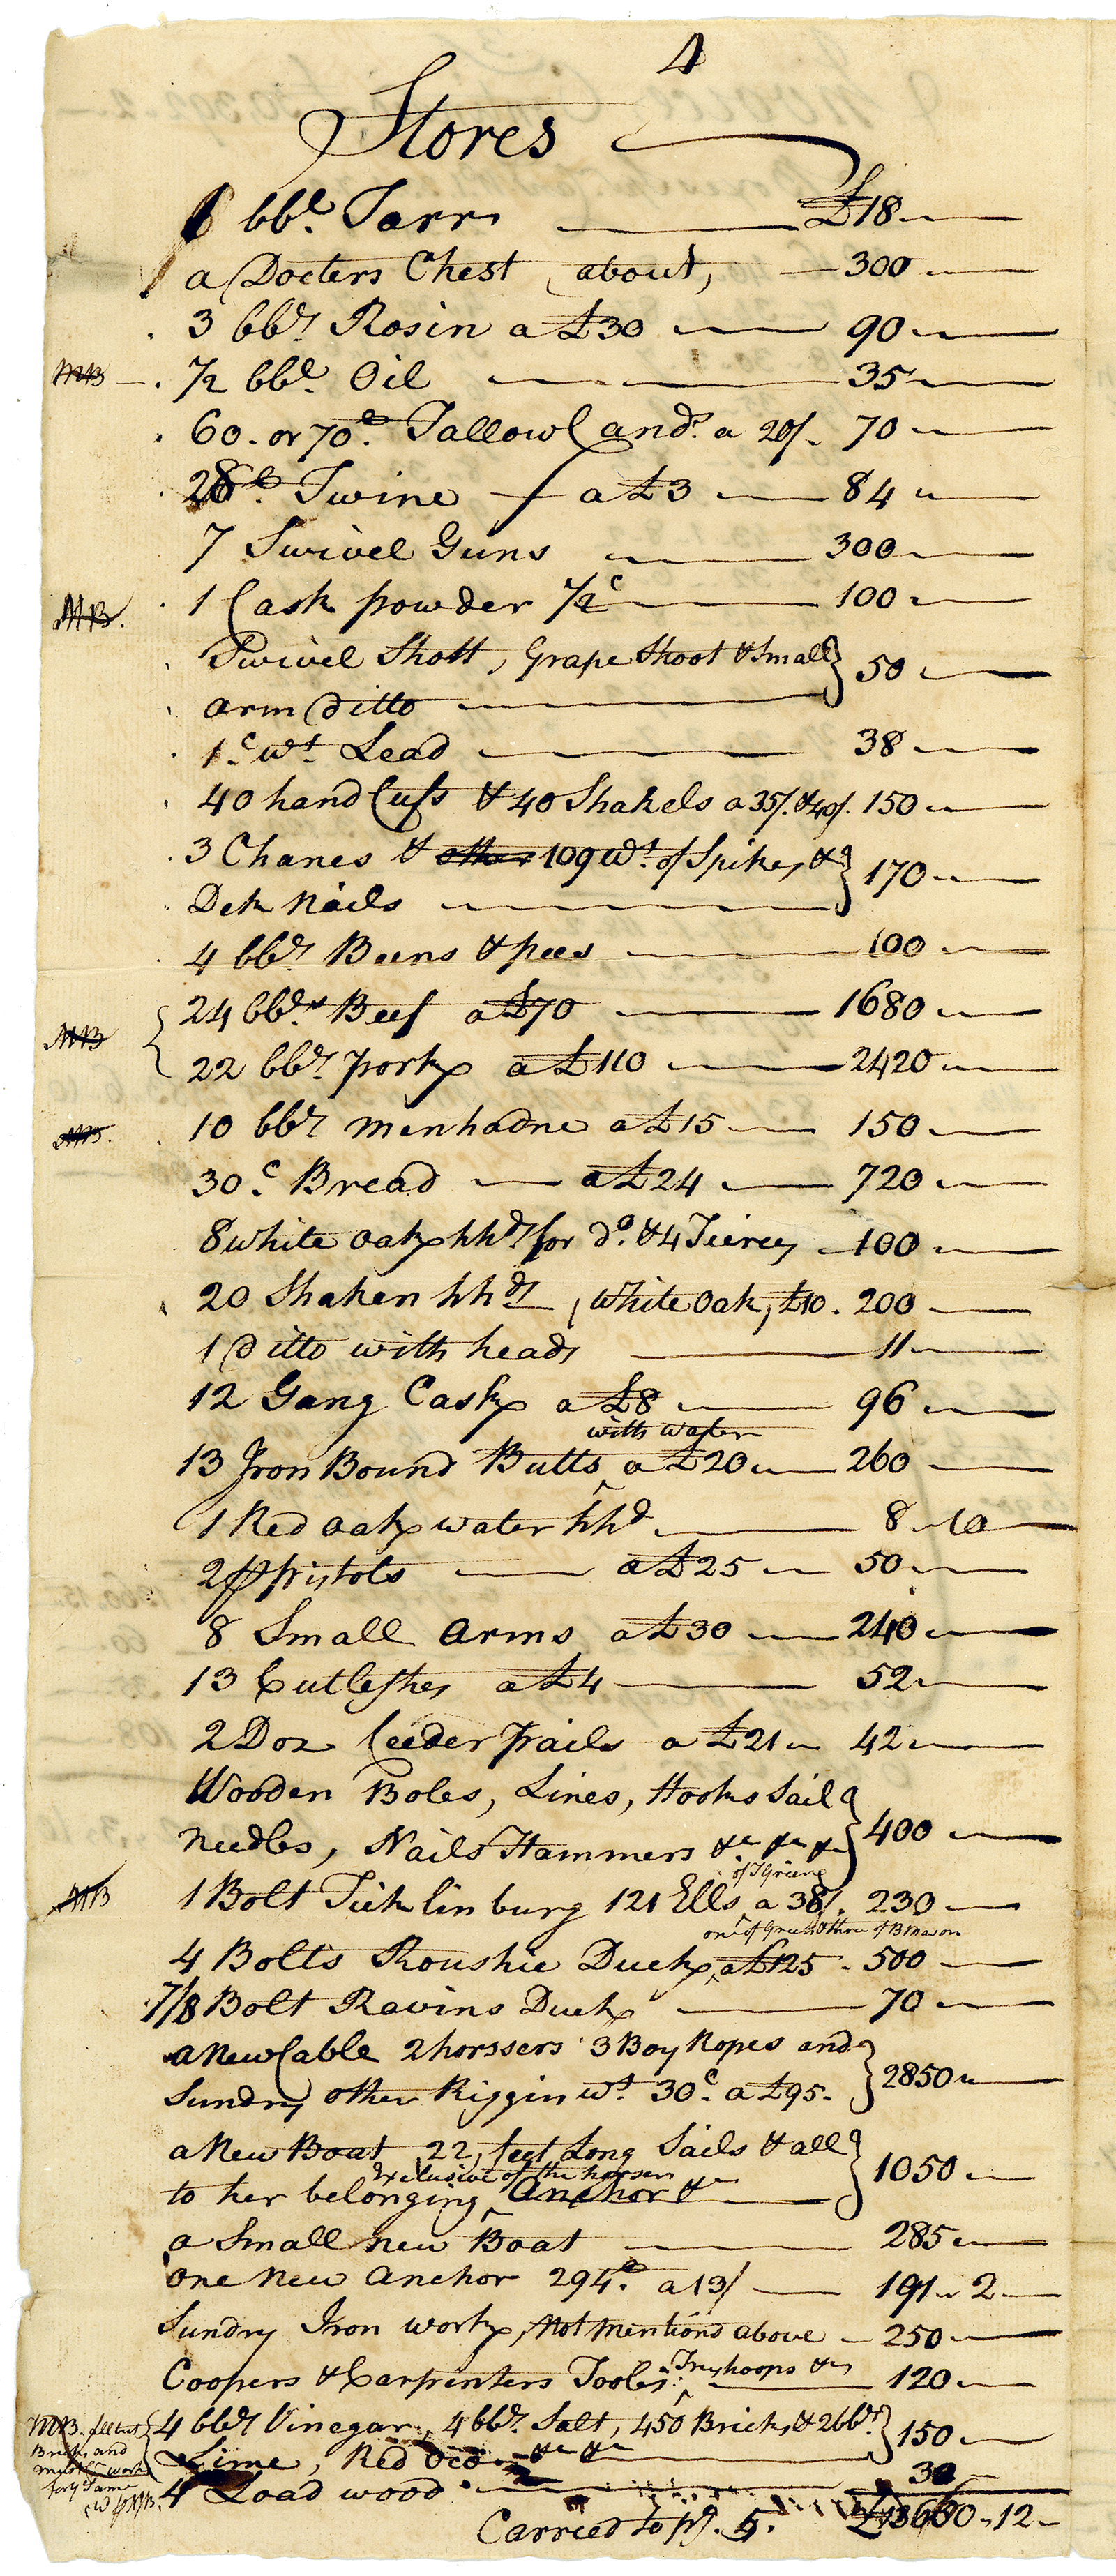 4
Stores
1 bbl. Tarr £18
a Docters Chest about, 300
3 bbls Rosin a £30 90
MB 1/2 bbl. Oil 35
60. or 70 lb. Tallow Cand. a 20/. 70
28 lb. Twine a £3 84
7 Swivel Guns 300
MB. 1 Cask powder 1/2 c 100
Swivel Shott, Grape Shoot & Small } 50
arm ditto
1 c. wt. Lead 38
40 hand Cufs & 40 Shakels a 35/. & 40/. 150
3 Chanes & other 109 wt. of Spikes & } 170
Dek Nails
4 bbls Beens & pees 100
24 bbls. Beef a £70 1680
MB { 22 bbls pork a £110 2420
MB. 10 bbls menhadne a £15 150
30 c. Bread a £24 720
8 white oak hhds for do. & 4 Teirces 100
20 Shaken hhds, white oak, £10. 200
1 ditto with heads 11
12 Gang Cask a £8 96
with water
13 Iron Bound Butts ^ a £20 260
1 Red oak water hhd 8 10
2 pr pistols a £25 50
8 Small arms a £30 240
13 Cutleshes a £4 52
2 Doz leeder pails a £21 42
Wooden Boles, Lines, Hooks Sail } 400
needles, Nails Hammers &c &c &c
of T Green
MB 1 Bolt Ticklinburg 121 Ells ^ a 38/. 230
one of Green & three of B Mason
4 Bolts Roushie Duck ^ a £125 . 500
7/8 Bolt Ravins Duck 70
a New Cable 2 horssers 3 Boy Ropes and } 2850
Sundry other Riggin wt 30 c. a £95.
a New Boat 22, feet Long Sails & all } 1050
Exclusive of the horser
to her belonging ^ Anchor &c
a Small new Boat 285
one New anchor 294 lb. a 13/ 191 2
Sundry Iron work, Not mentiond above 250
Coopers & Carpenters Tools. ^ Iron hoops &c 120
4 bbls Vinegar, 4 bbls. Salt, 450 Bricks & 2 bbls } 150
Lime, Red &c &c
MB. all but
Bricks and
work
Same
4 Load wood 30
Carried to pg. 5. £13660 12